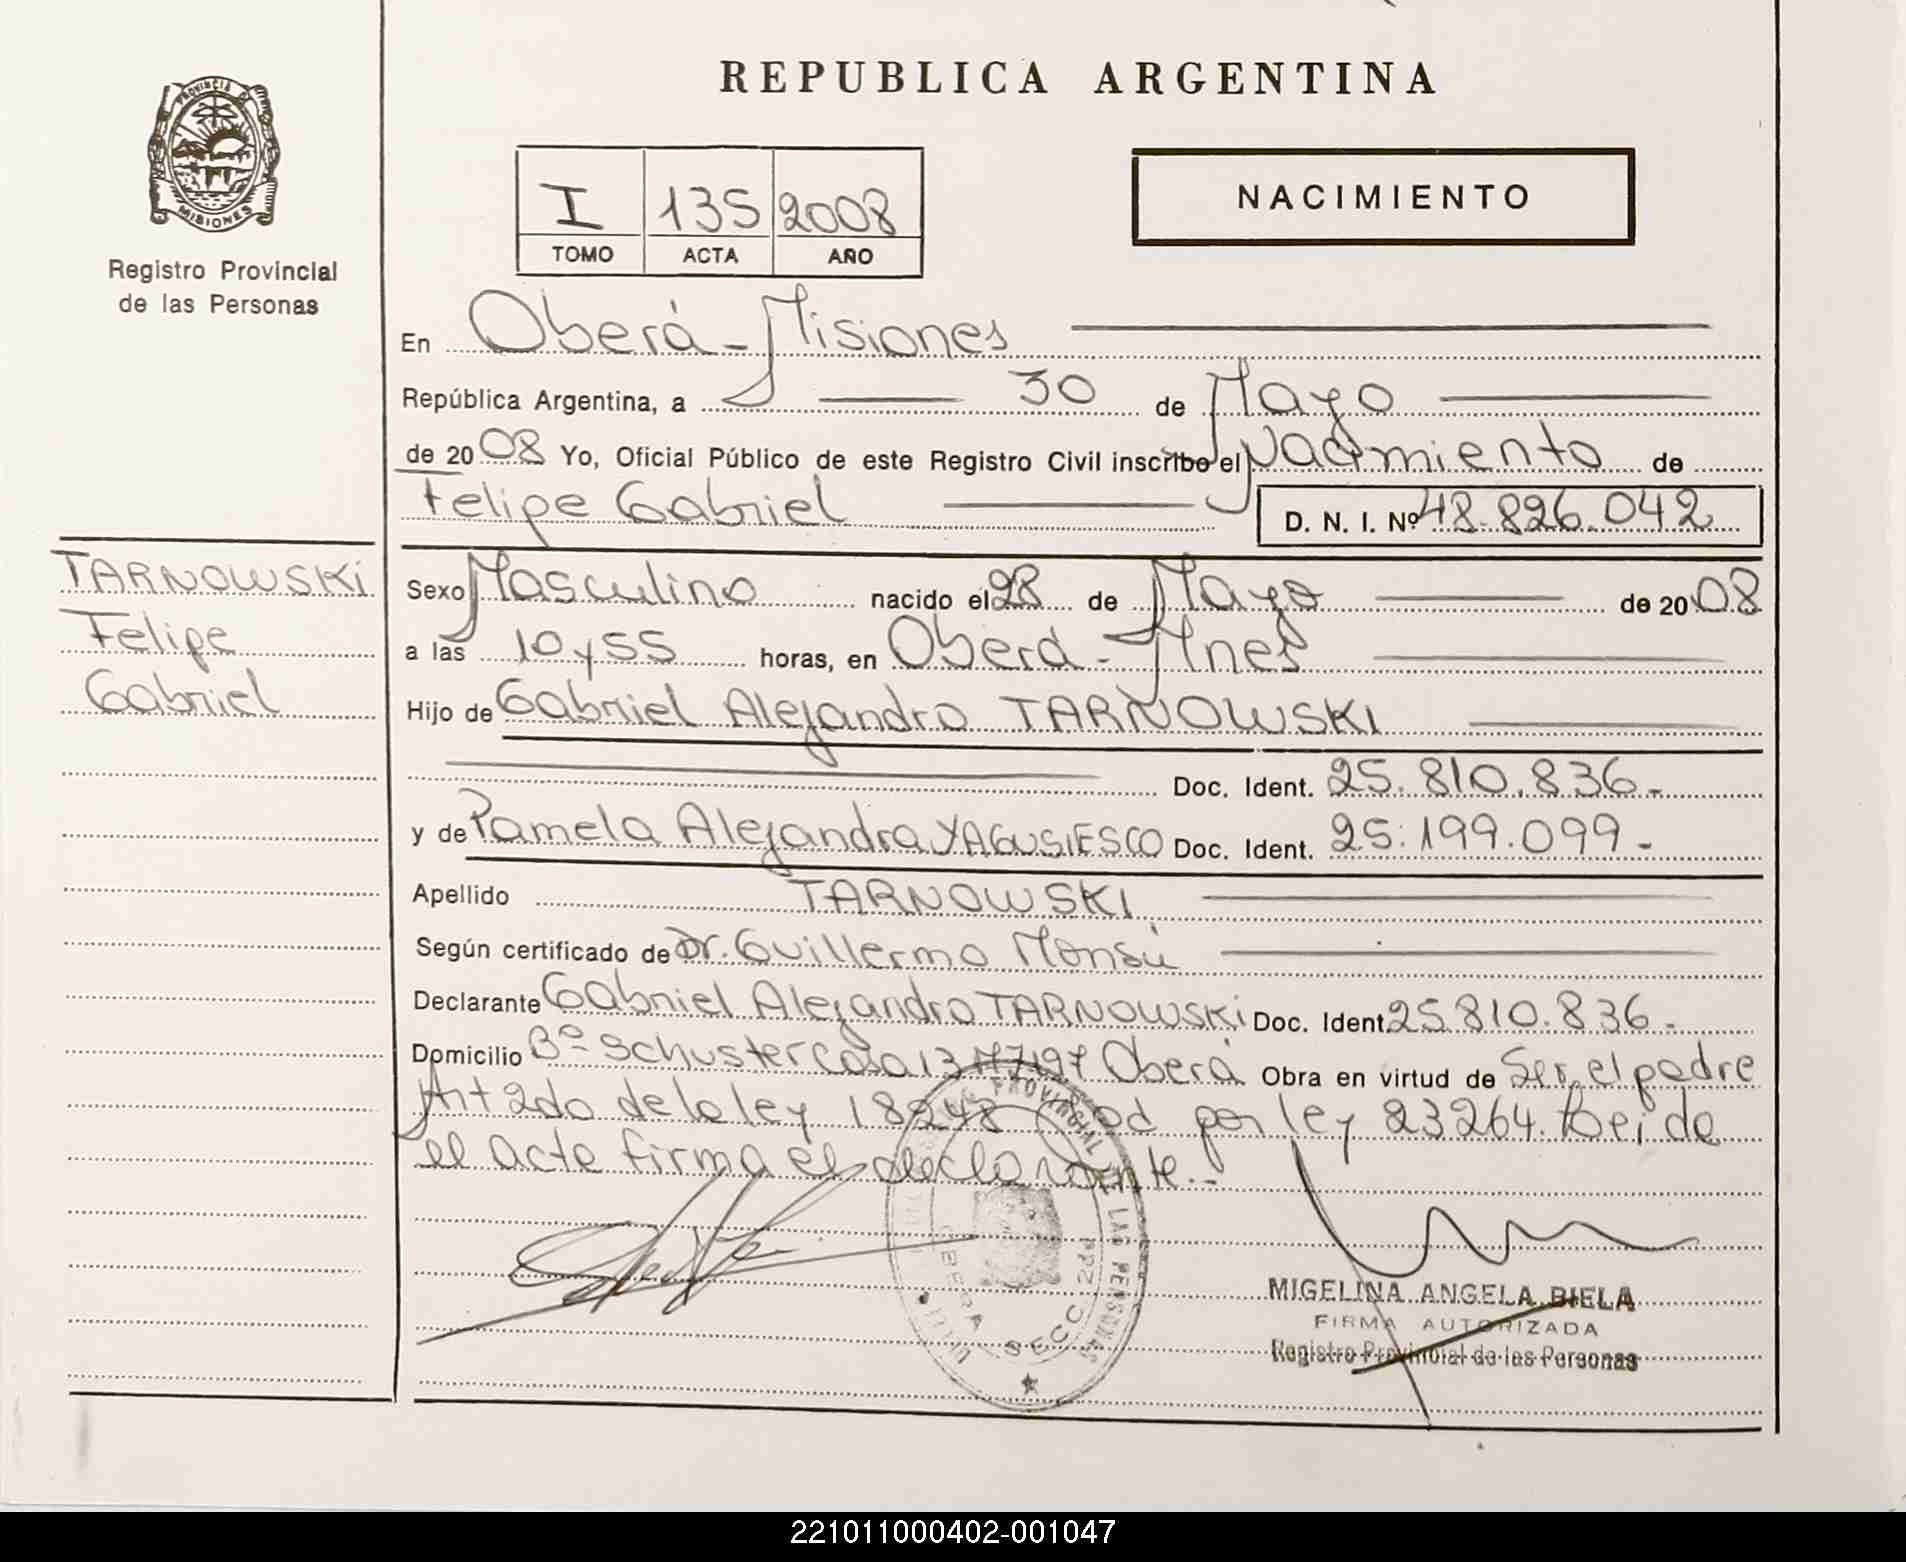 REPUBLICA ARGENTINA
PROVINCIA DE
MISIONES
Registro Provincial
de las Personas
I 135 2008
TOMO ACTA AÑO
NACIMIENTO
En Oberá - Misiones
República Argentina, a 30 de Mayo
de 2008 Yo, Oficial Público de este Registro Civil inscribo el Nacimiento de
Felipe Gabriel D. N. I. Nº 48.826.042
TARNOWSKI
Felipe
Gabriel
Sexo Masculino nacido el 28 de Mayo de 2008
a las 10 y 55 horas, en Oberá - Mnes
Hijo de Gabriel Alejandro TARNOWSKI
Doc. Ident. 25.810.836.-
y de Pamela Alejandra YAGUSIESCO Doc. Ident. 25.199.099.-
Apellido TARNOWSKI
Según certificado de Dr. Guillermo Monsú
Declarante Gabriel Alejandro TARNOWSKI Doc. Ident. 25.810.836.-
Domicilio Bº Schuster casa 13 Oberá Obra en virtud de Ser el padre
Art 2do de la ley 18248 Mod por ley 23264. Leída
el acta firma el declarante.-
PROVINCIAL DE LAS PERSONAS
OBERA SECC 2da
MIGELINA ANGELA BIELA
FIRMA AUTORIZADA
Registro Provincial de las Personas
221011000402-001047